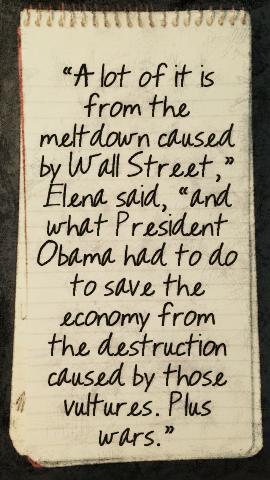 “A lot of it is
from the
meltdown caused
by Wall Street,”
Elena said, “and
what President
Obama had to do
to save the
economy from
the destruction
caused by those
vultures. Plus
wars.”